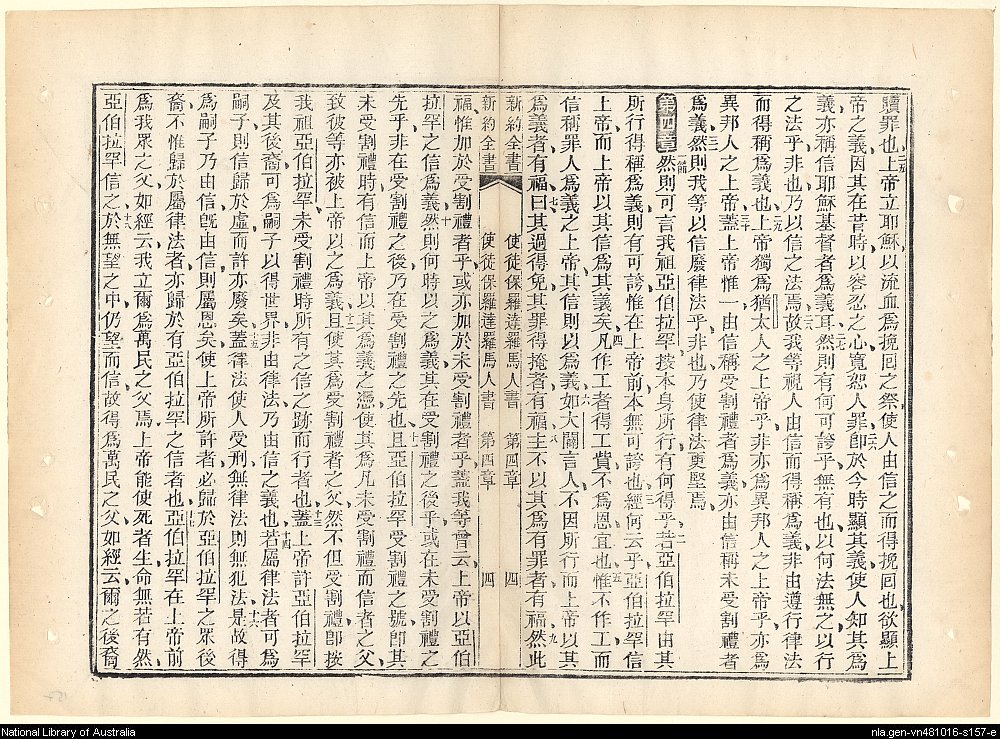 贖罪也、二五上帝立耶穌、以流血爲挽囘之祭、使人由信之而得挽囘也、欲顯上
帝之義、因其在昔時以容忍之心寬恕人罪、二六卽於今時顯其義、使人知其爲
義、亦稱信耶穌基督者爲義耳、二七然則有何可誇乎、無有也、以何法無之、以行
之法乎、非也、乃以信之法焉、二八故我等視人由信而得稱爲義、非由遵行律法
而得稱爲義也、二九上帝獨爲猶太人之上帝乎、非亦爲異邦人之上帝乎、亦爲
異邦人之上帝、三十蓋上帝惟一、由信稱受割禮者爲義、亦由信稱未受割禮者
爲義、三一然則我等以信廢律法乎、非也、乃使律法更堅焉、
第四章 一節然則可言我祖亞伯拉罕、按本身所行有何得乎、二若亞伯拉罕由其
所行得稱爲義、則有可誇、惟在上帝前本無可誇也、三經何云乎、亞伯拉罕信
上帝、而上帝以其信爲其義矣、四凡作工者得工貲、不爲恩、宜也、五惟不作工、而
信稱罪人爲義之上帝、其信則以爲義、六如大闢言、人不因所行、而上帝以其
爲義者有福、七曰、其過得免、其罪得掩者有福、八主不以其爲有罪者有福、九然此
新約全書 使徒保羅達羅馬人書 第四章 四
新約全書 使徒保羅達羅馬人書 第四章 四
福惟加於受割禮者乎、或亦加於未受割禮者乎、蓋我等曾云、上帝以亞伯
拉罕之信爲義、十然則何時以之爲義、其在受割禮之後乎、或在未受割禮之
先乎、非在受割禮之後、乃在受割禮之先也、十一且亞伯拉罕受割禮之號、卽其
未受割禮時有信、而上帝以其爲義之憑、使其爲凡未受割禮而信者之父、
致彼等亦被上帝以之爲義、十二且使其爲受割禮者之父、然不但受割禮、卽按
我祖亞伯拉罕未受割禮時所有之信之跡而行者也、十三蓋上帝許亞伯拉罕
及其後裔、可爲嗣子以得世界、非由律法、乃由信之義也、十四若屬律法者可爲
嗣子、則信歸於虛、而許亦廢矣、十五蓋律法使人受刑、無律法則無犯法、十六是故得
爲嗣子乃由信、旣由信則屬恩矣、使上帝所許者、必歸於亞伯拉罕之眾後
裔、不惟歸於屬律法者、亦歸於有亞伯拉罕之信者也、十七亞伯拉罕在上帝前
爲我眾之父、如經云、我立爾爲萬民之父焉、上帝能使死者生、命無若有然、
亞伯拉罕信之、十八於無望之中仍望而信、故得爲萬民之父、如經云、爾之後裔、
National Library of Australia
nla.gen-vn481016-s157-e